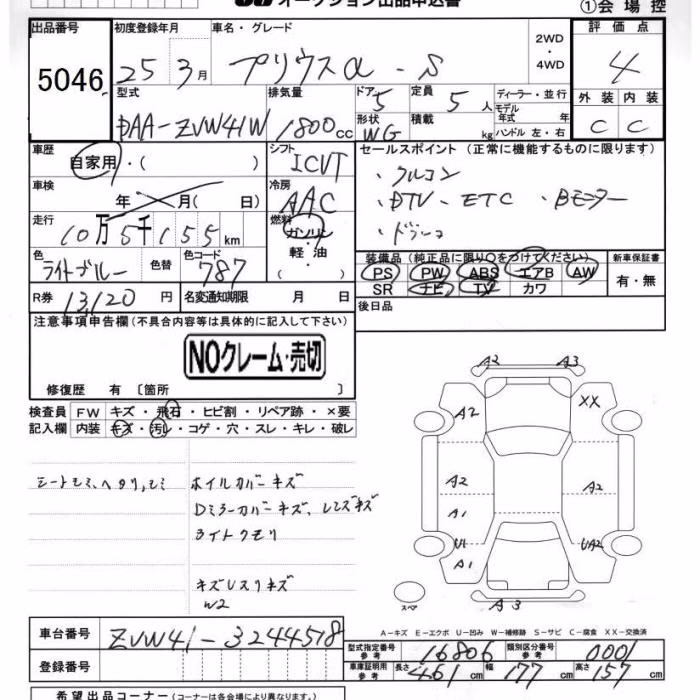 オークション出品申込書
①会場控
出品番号 5046
初度登録年月 25年3月
車名・グレード プリウスα - S
2WD・4WD
評価点 4
型式 DAA-ZVW41W
排気量 1800cc
ドア 5
形状 WG
定員 5人
積載 kg
ディーラー・並行
モデル年式 年
ハンドル 左・右
外装 C
内装 C
車歴 自家用・( )
シフト ICVT
セールスポイント (正常に機能するものに限ります)
・クルコン
・DTV・ETC ・Bモニター
・ドラレコ
車検 年 月( 日)
冷房 AAC
走行 10万5千155km
燃料 ガソリン 軽・油
色 ライトブルー 色替
色コード 787
装備品 (純正品に限り○をつけてください) 新車保証書
PS PW ABS エアB AW 有・無
SR ナビ TV カワ
R券 13,120円
名変通知期限 月 日
後日品
注意事項申告欄 (不具合内容等は具体的に記入して下さい)
NOクレーム・売切
修復歴 有 〔箇所 〕
検査員 FW キズ・飛石・ヒビ割・リペア跡・×要
記入欄 内装 キズ・汚レ・コゲ・穴・スレ・キレ・破レ
シートモミ、ヘタリ、シミ
ホイルカバーキズ
Dミラーカバーキズ、レンズキズ
ライトクモリ
キズUスリキズ
W2
A2 A3
A2 XX
A2 A2
A1
U1 UA2
A1
スペア
A3
A-キズ E-エクボ U-凹み W-補修跡 S-サビ C-腐食 XX-交換済
車台番号 ZVW41-3244518
型式指定番号 参考 16806
類別区分番号 参考 0001
登録番号
車庫証明用 参考 長さ 461cm 幅 177cm 高さ 157cm
希望出品コーナー (コーナーは各会場により異なります。)